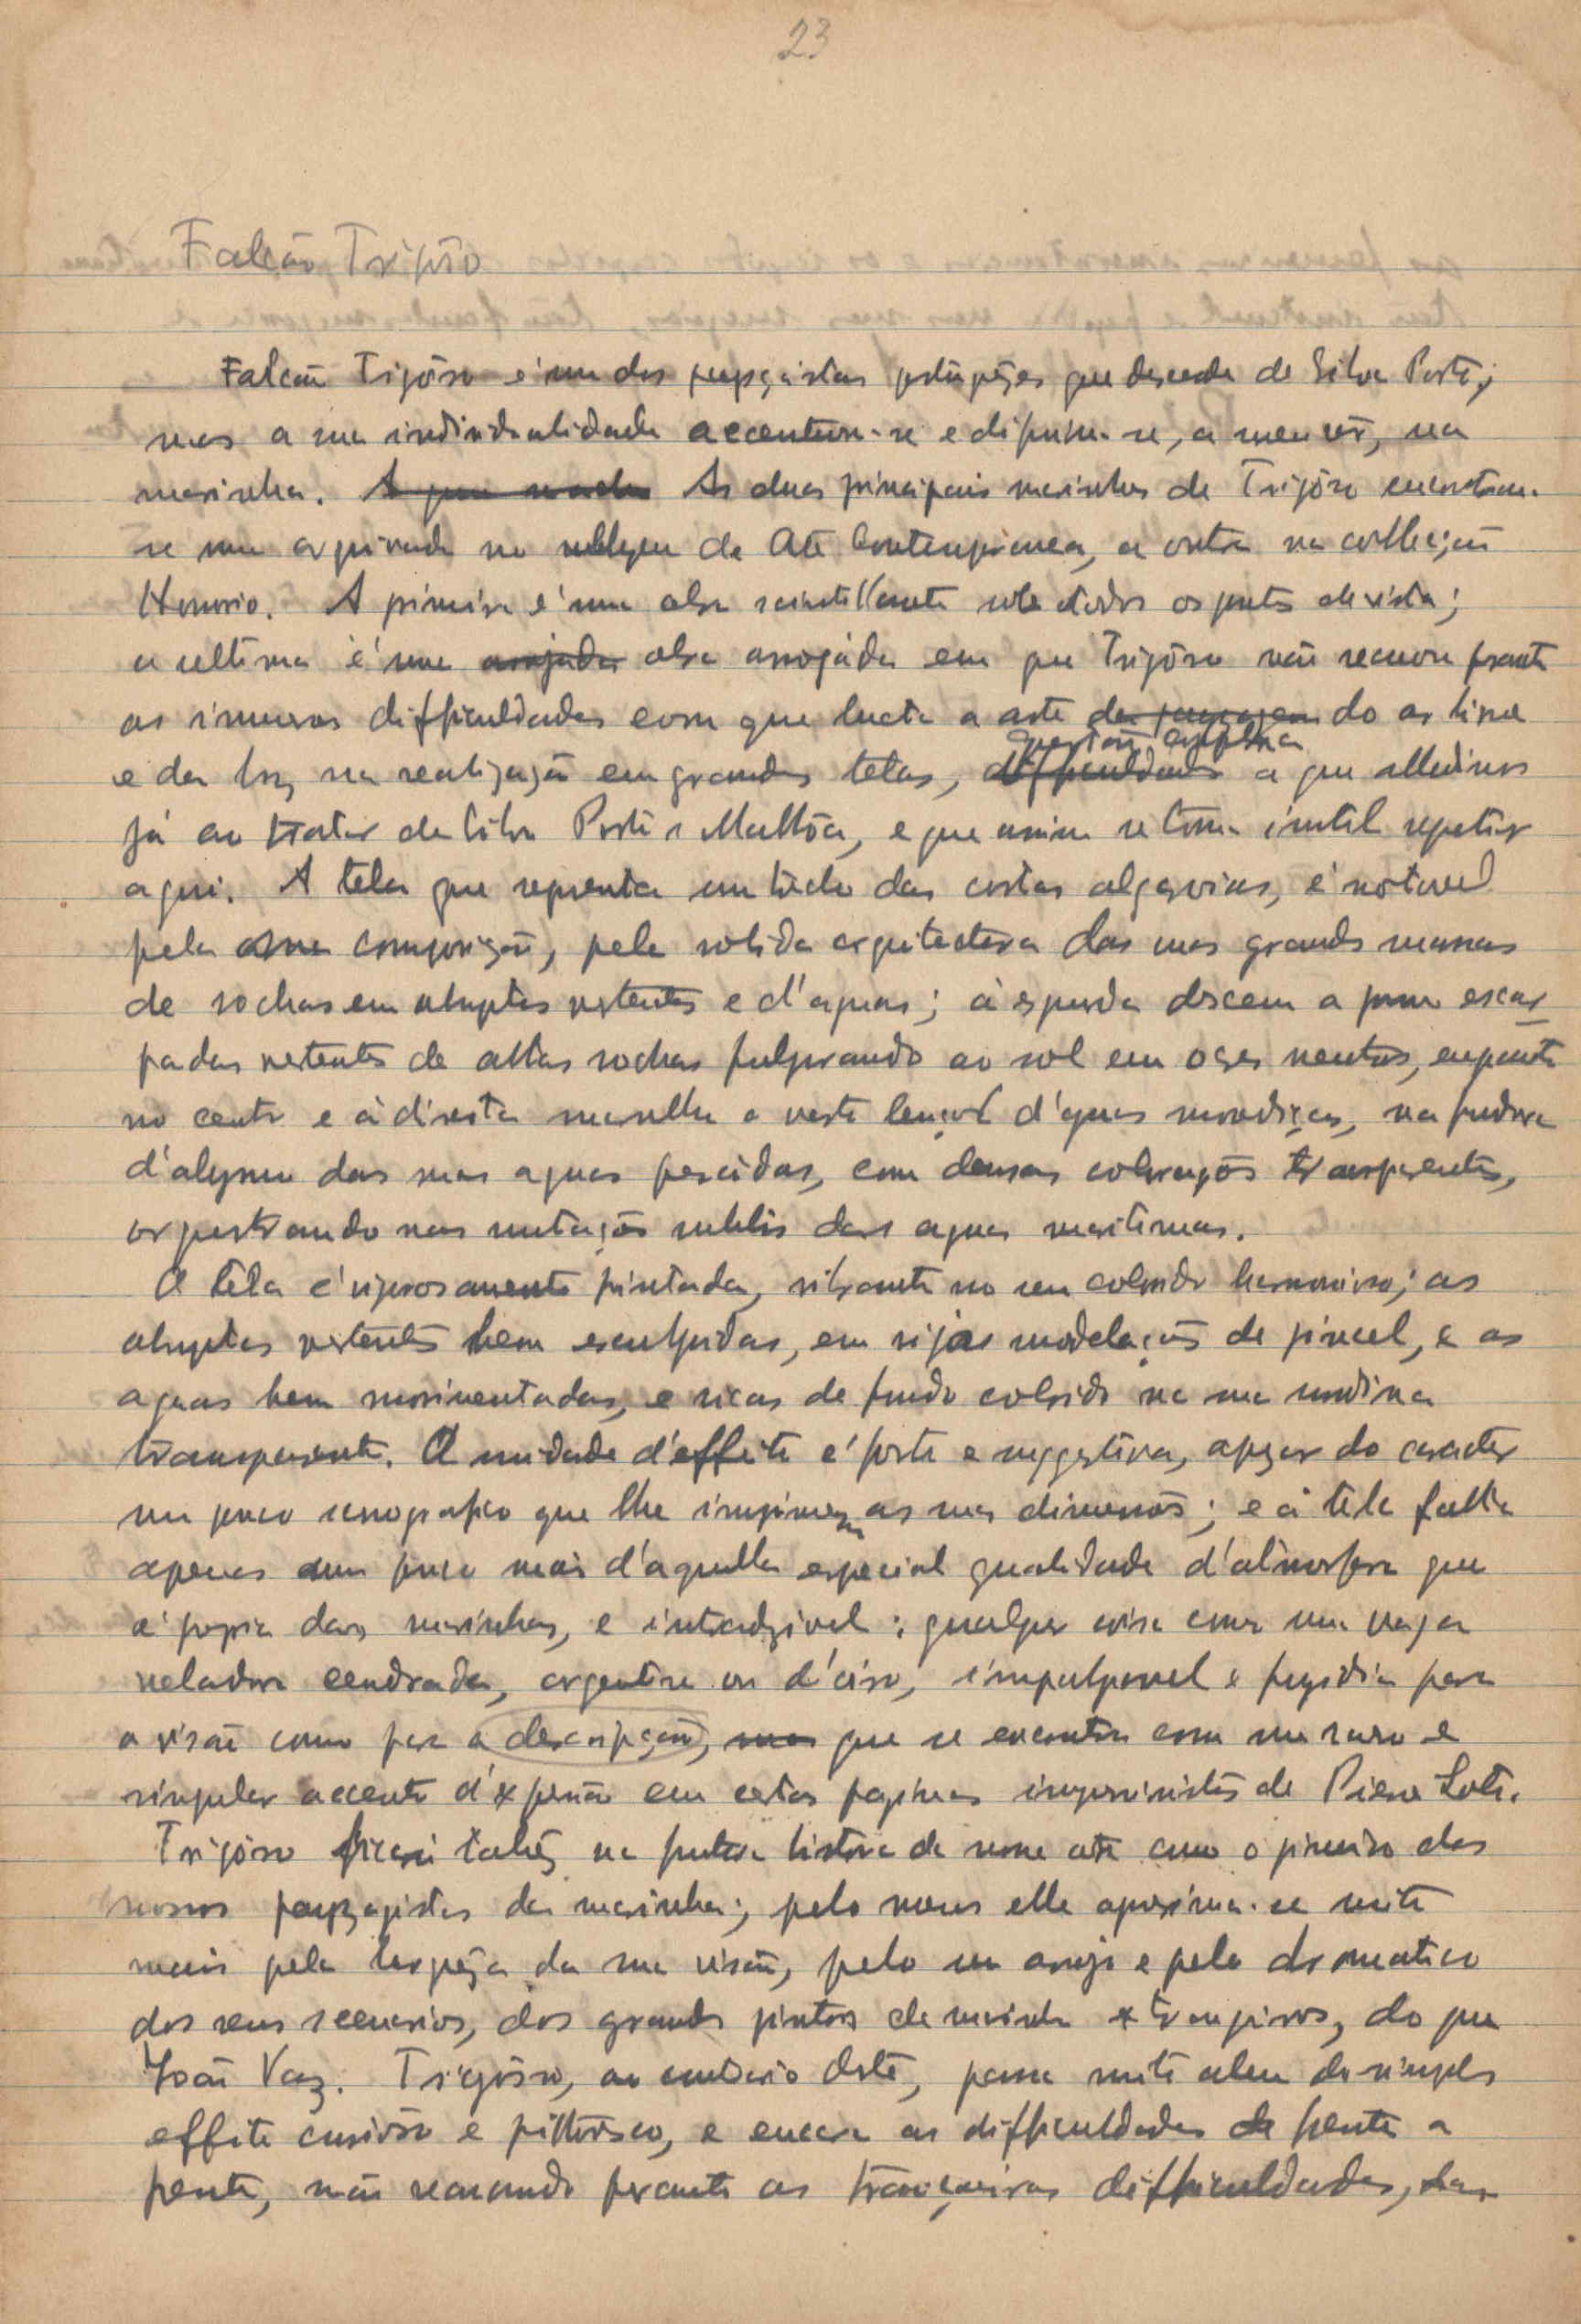 23
Falcão Trigôso
Falcão Trigôso é um dos paysagistas portuguezes que descende de Silva Porto;
mas a sua individualidade accentua-se e define-se, a meu vêr, na
marinha. As duas principais marinhas de Trigôso encontram-
se uma arquivada no museu de Arte Contemporanea, a outra na collecção
Honorio. A primeira é uma obra scintillante sob todos os pontos de vista;
a ultima é uma arrojada obra arrojada em que Trigôso não recuou perante
as imensas difficuldades com que lucta a arte da paysagem do ar livre
e da luz, na realização em grandes telas, difficuldades questão a que alludimos
já ao tratar de Silva Porto e Malhôa, e que assim se torna inutil repetir
aqui. A tela que representa um trecho das costas algarvias, é notavel
pela sua composição, pela solida arquitectura das suas grandes massas
de rochas em abruptas vertentes e d'aguas; à esquerda descem a prumo escar-
padas vertentes de altas rochas fulgurando ao sol em ocres neutros, enquanto
no centro e à direita marulha o vasto lençol d'aguas movediças, na
d'algumas das suas aguas, com densas colorações transparentes,
orquestrando nas mutações subtis das aguas maritimas.
A tela é vigorosamente pintada, vibrante no seu colorido harmonioso; as
abruptas vertentes bem esculpidas, em rijas modelações de pincel, e as
aguas bem movimentadas, e ricas de fundo colorido na sua undina
transparente. A unidade d'effeito é forte e suggestiva, apezar do caracter
um pouco scenografico que lhe imprimem as suas dimensões; e á tela falta
apenas um pouco mais d'aquella especial qualidade d'atmosfera que
é propria das marinhas, e intraduzivel: qualquer coisa como uma vaga
veladura cendrada, argentina ou d'oiro, impalpavel e fugidia para
a visão como para a descripção, mas que se encontra com um raro e
singular accento d'expressão em certas paginas impressionistas de Pierre Loti.
Trigôso ficará talvez na futura historia da nossa arte como o primeiro dos
nossos paysagistas da marinha; pelo menos elle aproxima-se muito
mais pela largueza da sua visão, pelo seu arrojo e pelo dramatico
dos seus scenarios, dos grandes pintores de marinha extrangeiros, do que
João Vaz. Trigôso, ao contrario d'este, passa muito alem do simples
effeito curioso e pittoresco, e encara as difficuldades de frente a
frente, não recuando perante as traiçoeiras difficuldades, das